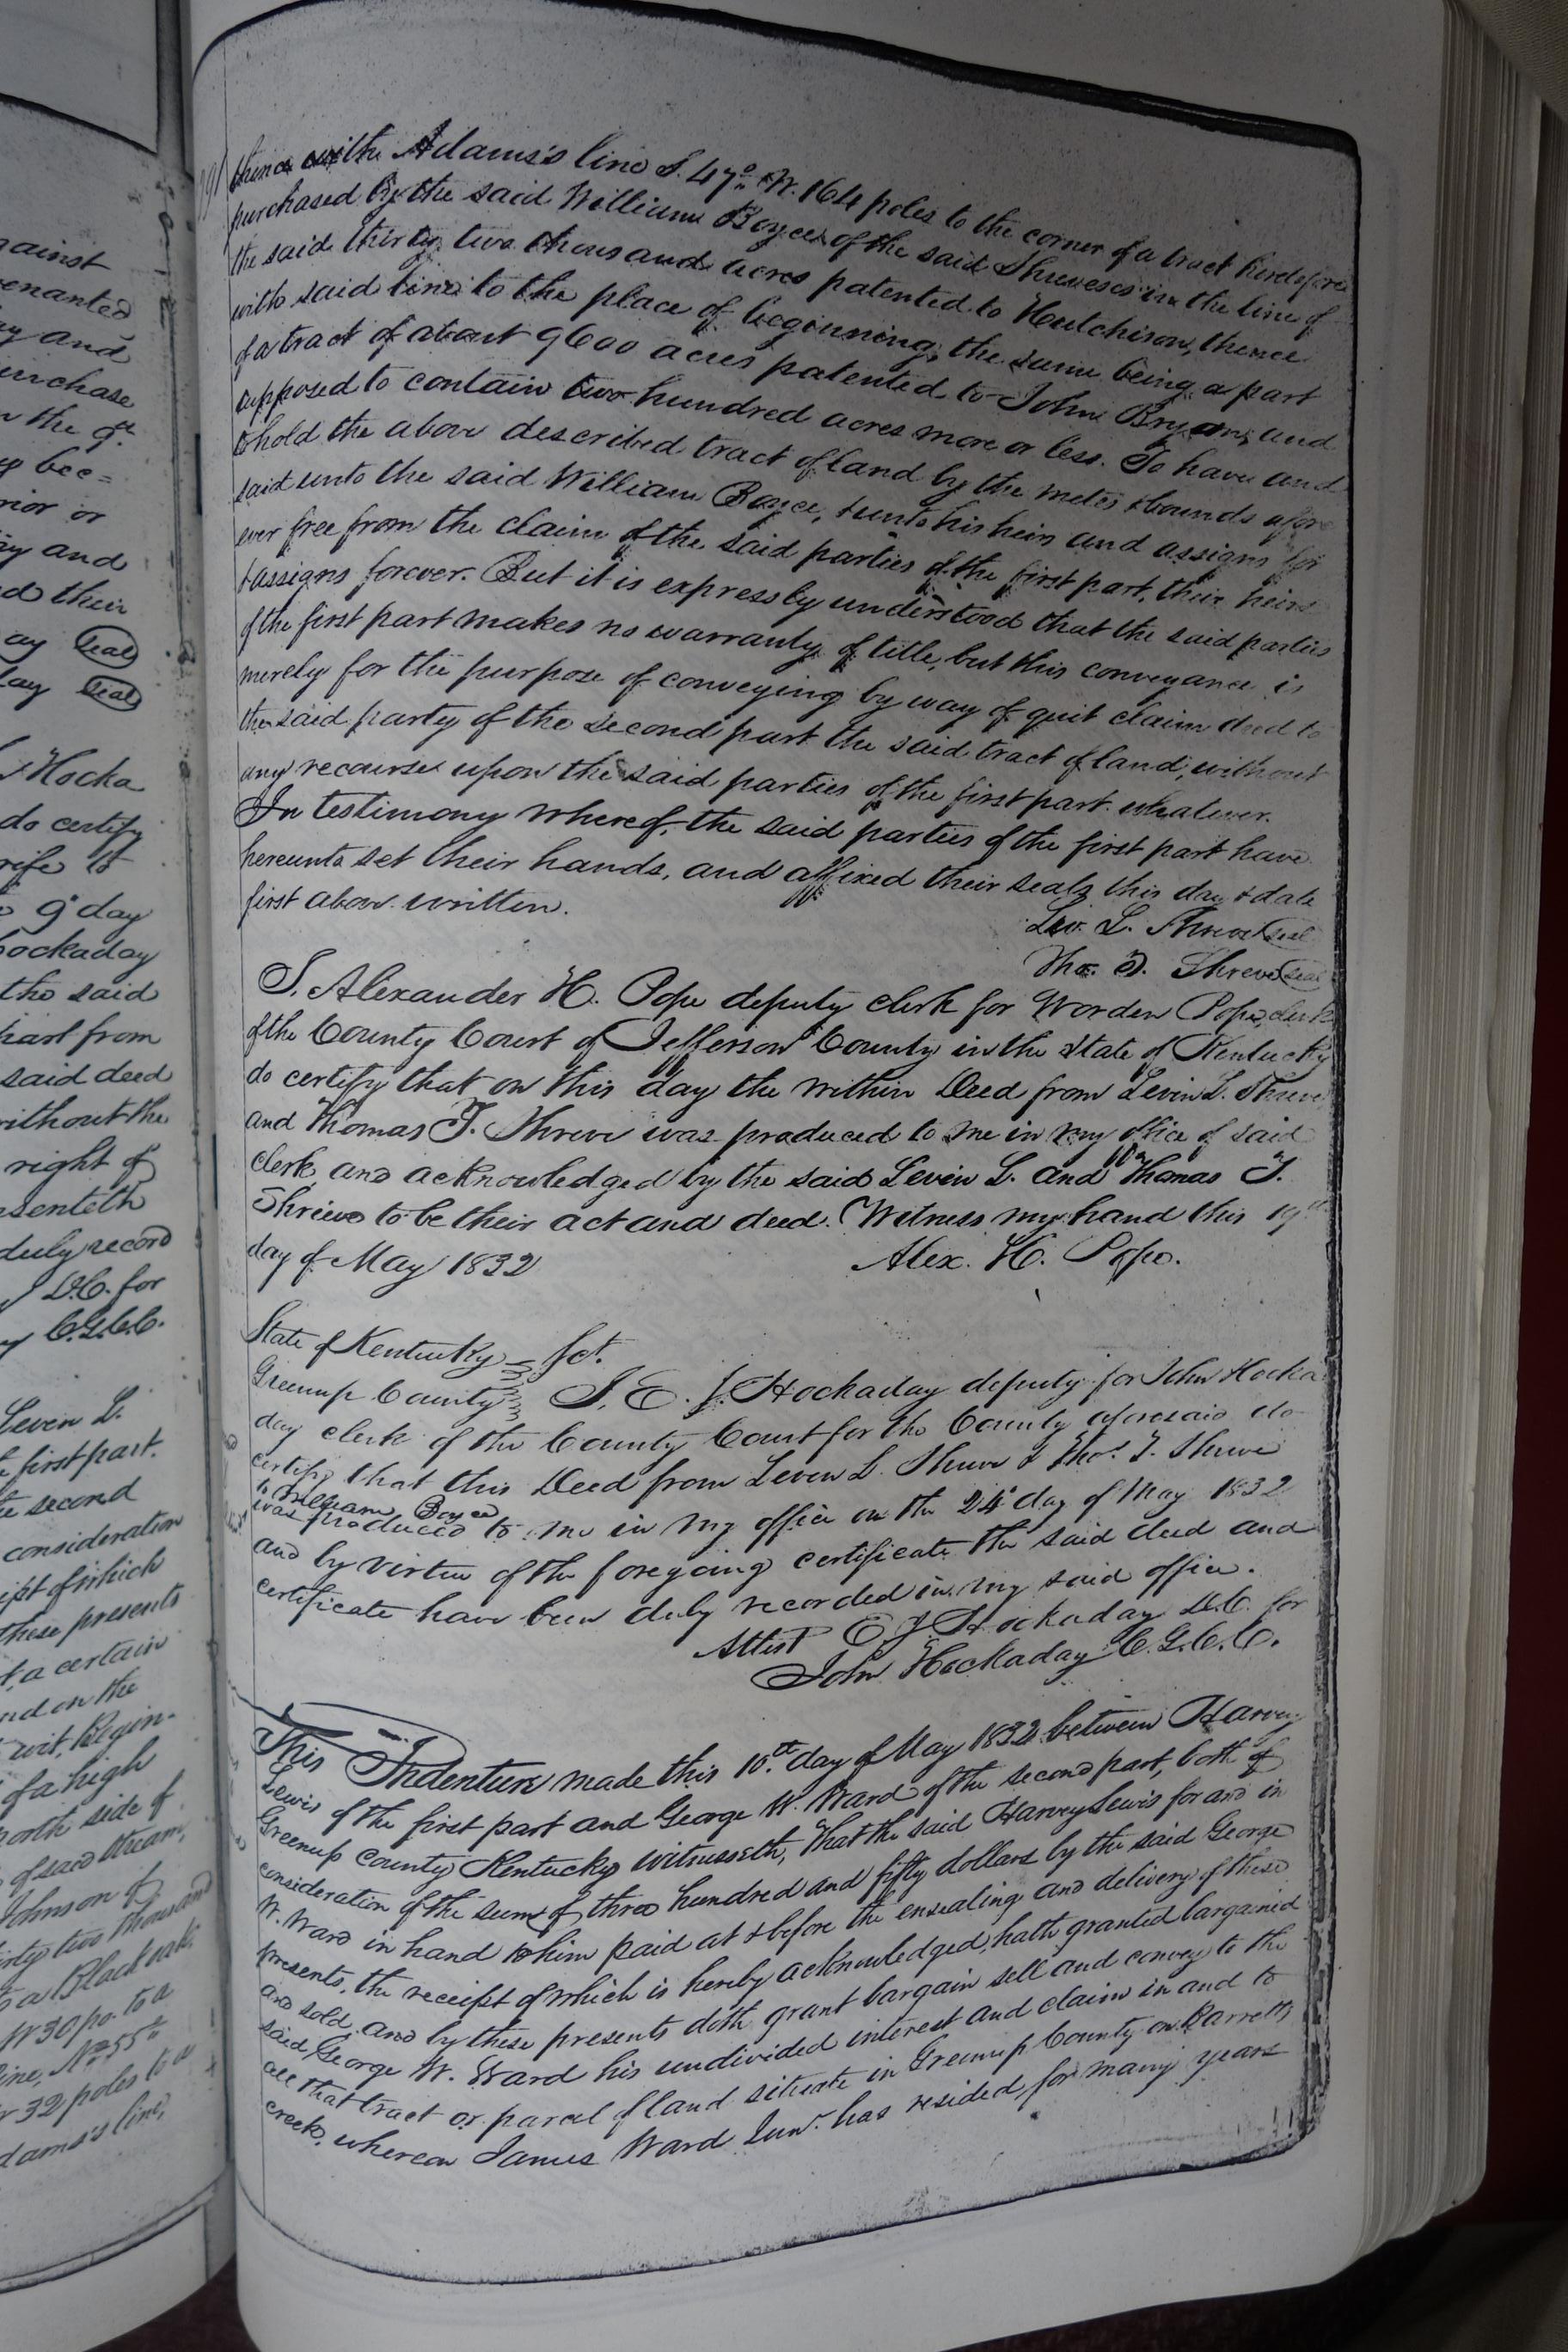 gainst
enanted
y and
urchase
n the 9th
y bec=
rior or
ry and
d their
ay Seal
ay Seal
Hocka
do certify
wife to
9th day
Hockaday
the said
part from
said deed
without the
right of
senteth
duly record
D.C. for
C.G.C.C.
Leven L.
first part.
second
consideration
ipt of which
these presents
t, a certain
nd on the
wit, Begin-
of a high
north side of
of said stream,
Johnson of
irty two thousand
to a Black oak,
W 30 po. to a
line, No. 55th
32 poles to a
dams's line,
thence with Adams's line S. 47° W. 164 poles to the corner of a tract heretofore
purchased by the said William Boyce of the said Shreveses in the line of
the said thirty two thousand acres patented to Hutchison, thence
with said line to the place of beginning, the same being a part
of a tract of about 9600 acres patented to John Bryan, and
supposed to contain two hundred acres more or less. To have and
to hold the above described tract of land by the metes & bounds afore
said unto the said William Boyce, & unto his heirs and assigns for
ever free from the claim of the said parties of the first part, their heirs
& assigns forever. But it is expressly understood that the said parties
of the first part makes no warranty of title, but this conveyance is
merely for the purpose of conveying by way of quit claim deed to
the said party of the second part the said tract of land, without
any recourse upon the said parties of the first part whatever.
In testimony whereof, the said parties of the first part have
hereunto set their hands, and affixed their seals this day & date
first above written.
Lev. L. Shreve Seal
Tho. T. Shreve Seal
I, Alexander H. Pope deputy clerk for Worden Pope, clerk
of the County Court of Jefferson County in the State of Kentucky
do certify that on this day the within Deed from Levin L. Shreve
and Thomas T. Shreve was produced to me in my office of said
clerk and acknowledged by the said Levin L. and Thomas T.
Shreve to be their act and deed. Witness my hand this 19th
day of May 1832
Alex. H. Pope.
State of Kentucky Sct.
Greenup County I, E. J. Hockaday deputy for John Hocka
day clerk of the County Court for the County aforesaid do
certify that this Deed from Leven L. Shreve & Tho. T. Shreve
to William Boyce
was produced to me in my office on the 24th day of May 1832
and by virtue of the foregoing certificate the said deed and
certificate have been duly recorded in my said office.
Attest E J Hockaday D.C. for
John Hockaday C.G.C.C.
This Indenture made this 10th day of May 1832 between Harvey
Lewis of the first part and George W. Ward of the second part, both of
Greenup County Kentucky witnesseth, That the said Harvey Lewis for and in
consideration of the sum of three hundred and fifty dollars by the said George
W. Ward in hand to him paid at & before the ensealing and delivery of these
presents, the receipt of which is hereby acknowledged, hath granted bargained
and sold, and by these presents doth grant bargain sell and convey to the
said George W. Ward his undivided interest and claim in and to
all that tract or parcel of land situate in Greenup County on Barretts
creek, whereon James Ward Junr. has resided, for many years